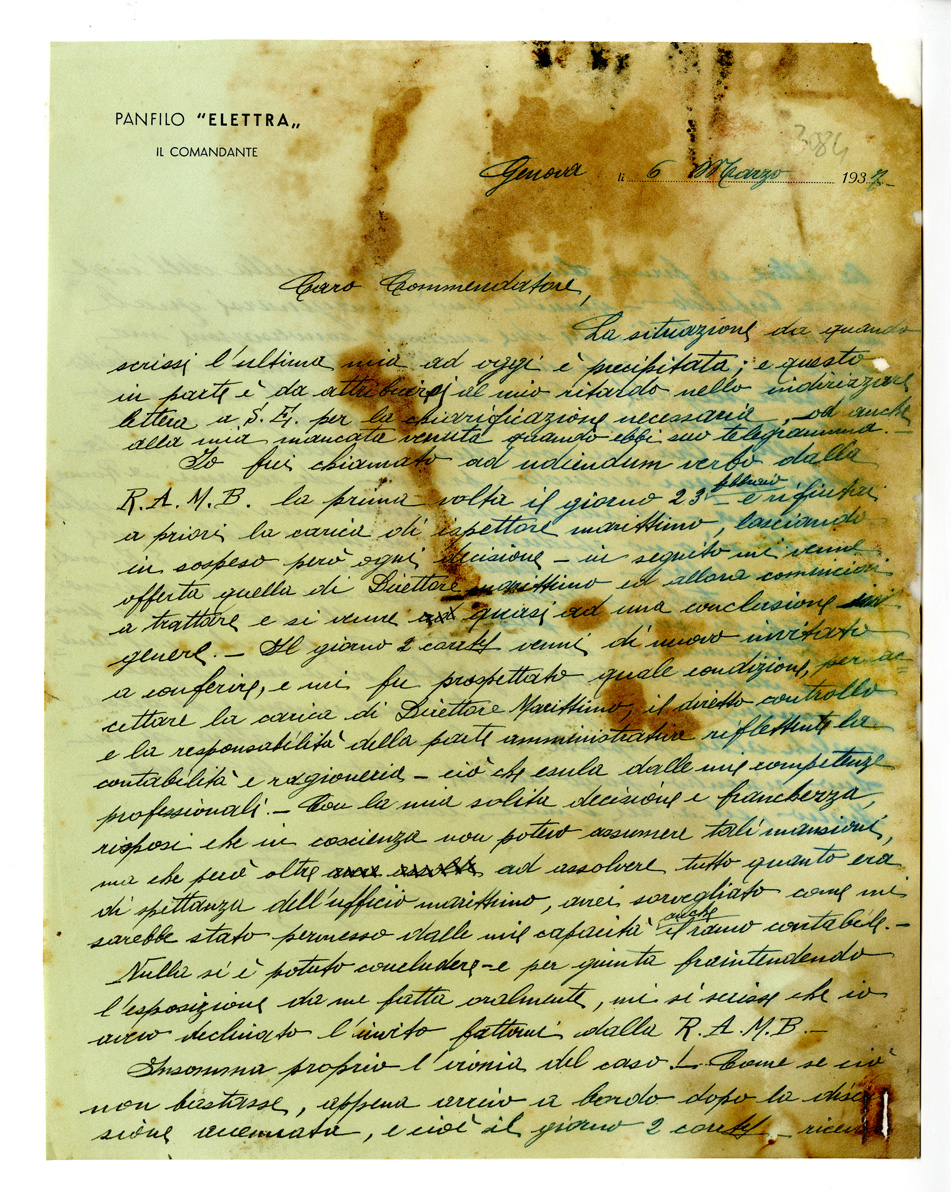 PANFILO "ELETTRA„
IL COMANDANTE
3084
Genova li 6 Marzo 1937
Caro Commendatore,
La situazione da quando
scrissi l'ultima mia ad oggi è precipitata; e questo
in parte è da attribuirsi al mio ritardo nello indirizzare
lettera a S.E. per la chiarificazione necessaria, od anche
alla mia mancata venuta quando ebbi suo telegramma. –
Io fui chiamato ad udiendum verbo dalla
R.A.M.B. la prima volta il giorno 23 febbraio e rifiutai
a priori la carica di ispettore marittimo, lasciando
in sospeso però ogni decisione – in seguito mi venne
offerta quella di Direttore marittimo ed allora cominciai
a trattare e si venne quasi ad una conclusione in
genere. – Il giorno 2 corr. venni di nuovo invitato
a conferire, e mi fu prospettato quale condizione, per ac=
cettare la carica di Direttore Marittimo, il diretto controllo
e la responsabilità della parte amministrativa riflettente la
contabilità e ragioneria – ciò che esula dalle mie competenze
professionali. – Con la mia solita decisione e franchezza,
risposi che in coscienza non potevo assumere tali mansioni,
ma che però oltre ad assolvere tutto quanto era
di spettanza dell'ufficio marittimo, avrei sorvegliato come mi
sarebbe stato permesso dalle mie capacità anche il ramo contabile. –
Nulla si è potuto concludere – e per giunta fraintendendo
l'esposizione da me fatta oralmente, mi si scisse che io
avevo declinato l'invito fattomi dalla R.A.M.B. –
Insomma proprio l'ironia del caso! – Come se ciò
non bastasse, appena arrivo a bordo dopo la discus
sione accennata, e cioè il giorno 2 corr. –